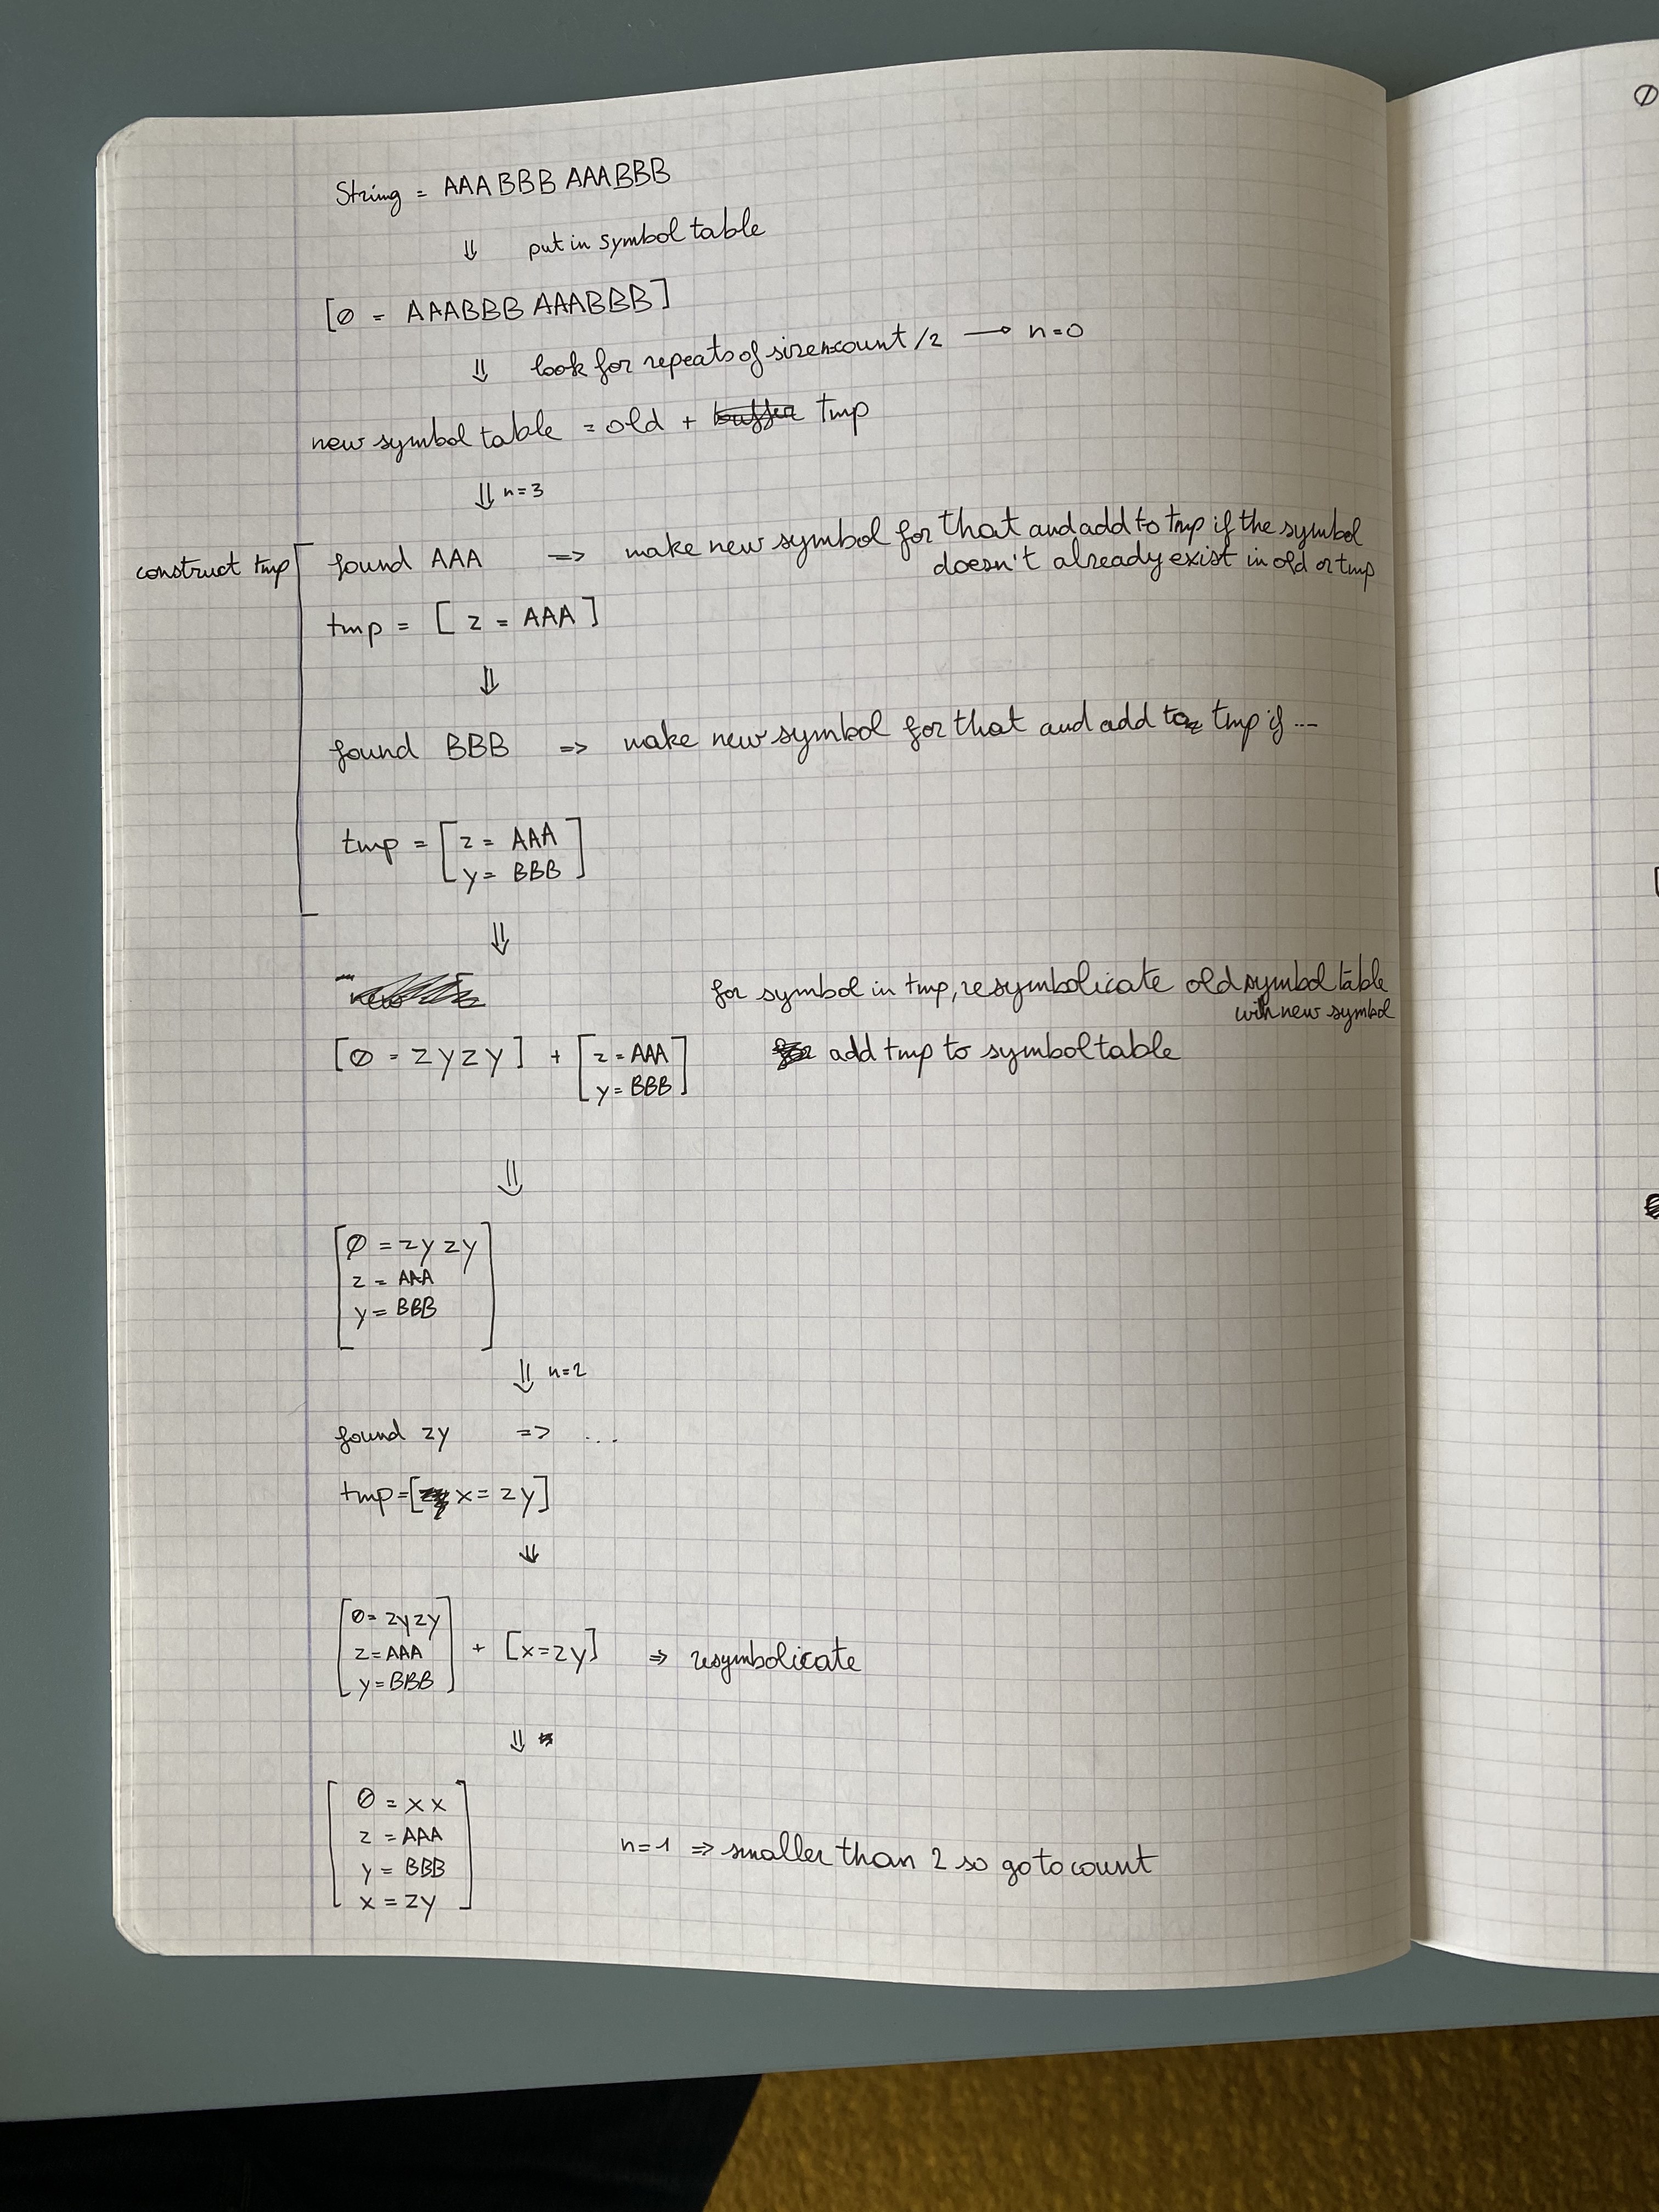 String = AAABBB AAABBB
⇓ put in symbol table
[∅ = AAABBB AAABBB]
⇓ look for repeats of size n=count/2 → n=0
new symbol table = old + tmp
⇓ n=3
construct tmp
found AAA => make new symbol for that and add to tmp if the symbol
doesn't already exist in old or tmp
tmp = [z = AAA]
⇓
found BBB => make new symbol for that and add to tmp if ...
tmp = [z = AAA
y = BBB]
⇓
for symbol in tmp, resymbolicate old symbol table
with new symbol
[∅ = zyzy] + [z = AAA
y = BBB]
add tmp to symbol table
⇓
[∅ = zyzy
z = AAA
y = BBB]
⇓ n=2
found zy => ...
tmp=[x = zy]
⇓
[∅ = zyzy
z = AAA
y = BBB] + [x = zy] => resymbolicate
⇓
[∅ = xx
z = AAA
y = BBB
x = zy]
n=1 => smaller than 2 so go to count
∅